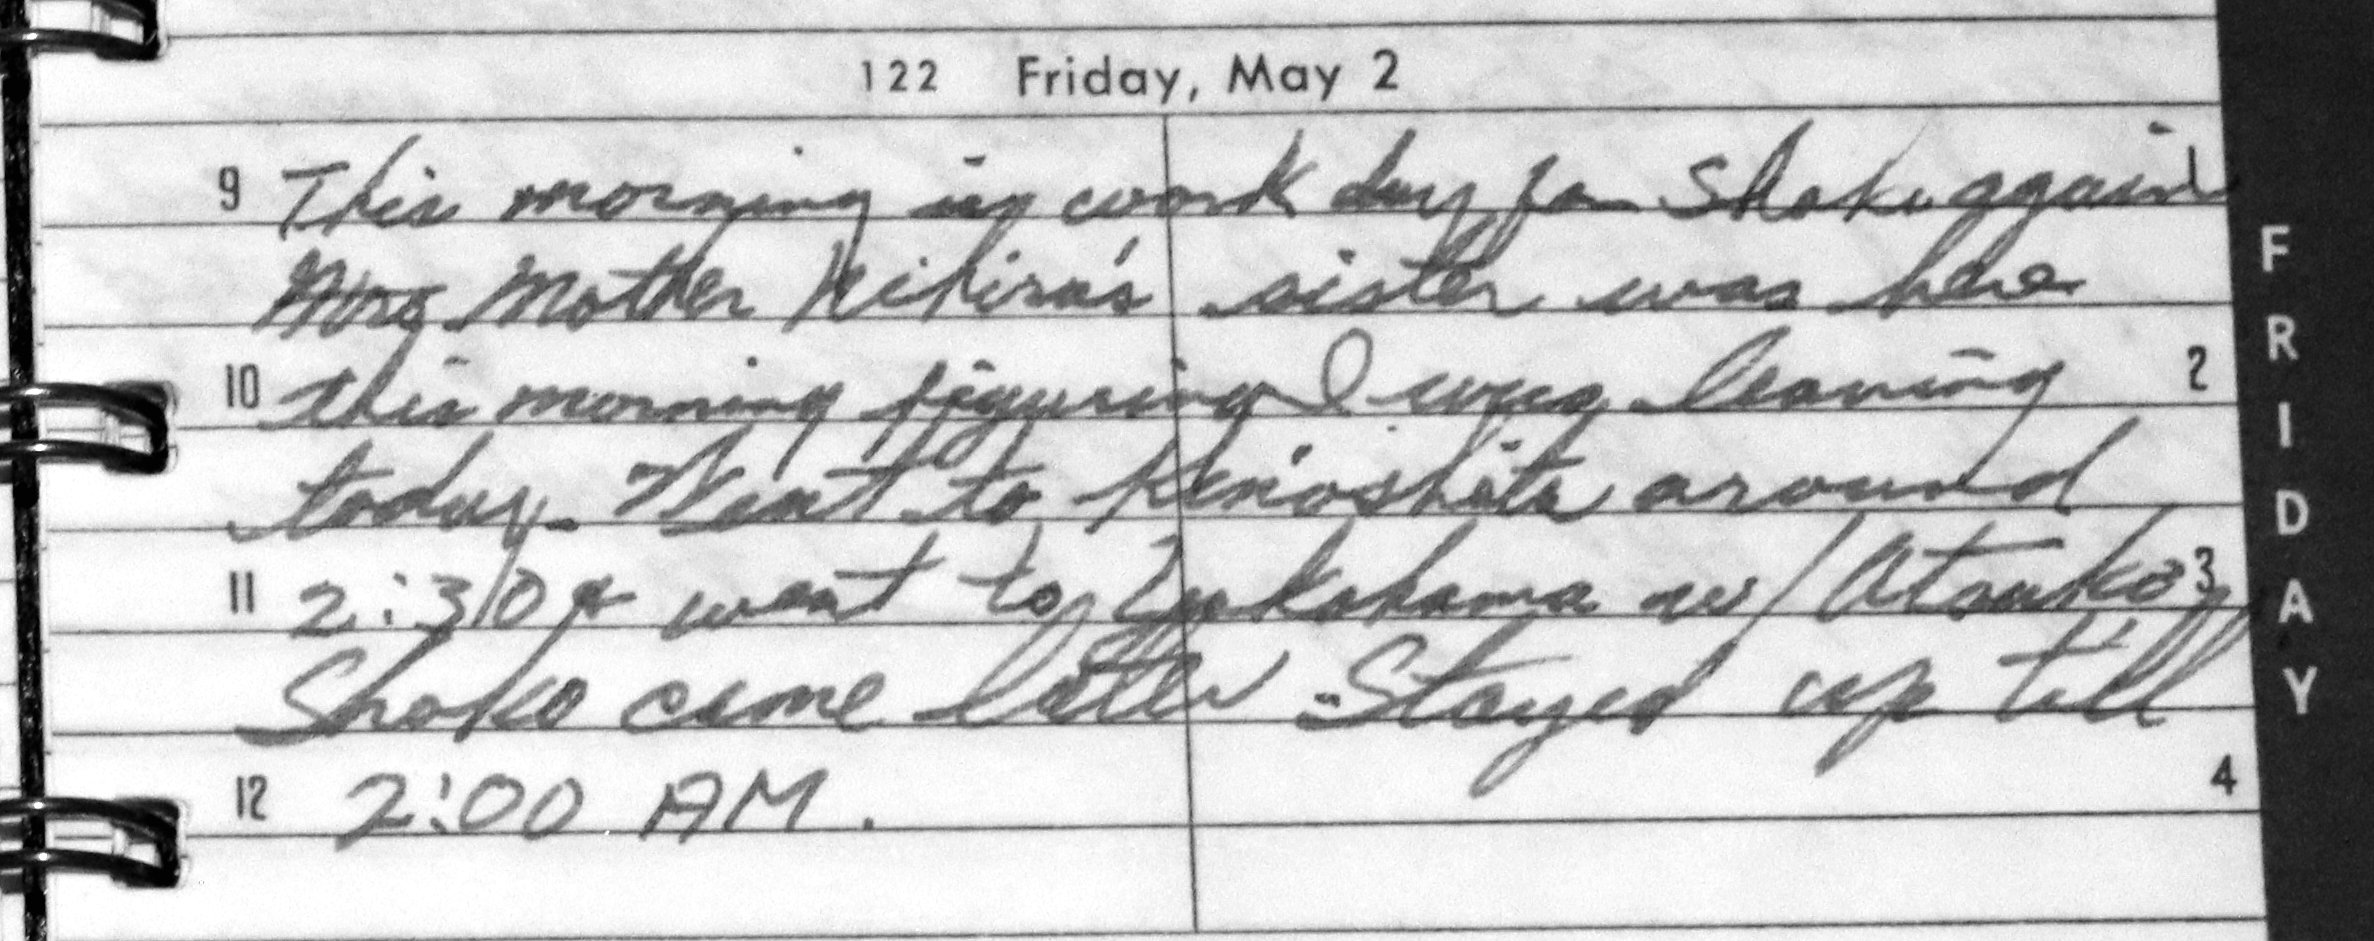 122 Friday, May 2
9 This morning is work day for Shoko again 1
Mrs Mother Nihira's sister was here
10 this morning figuring I was leaving 2
today. Went to Kinoshita around
11 2:30 & went to Yokohama w/ Atsuko 3
Shoko came later. Stayed up till
12 2:00 AM. 4
FRIDAY